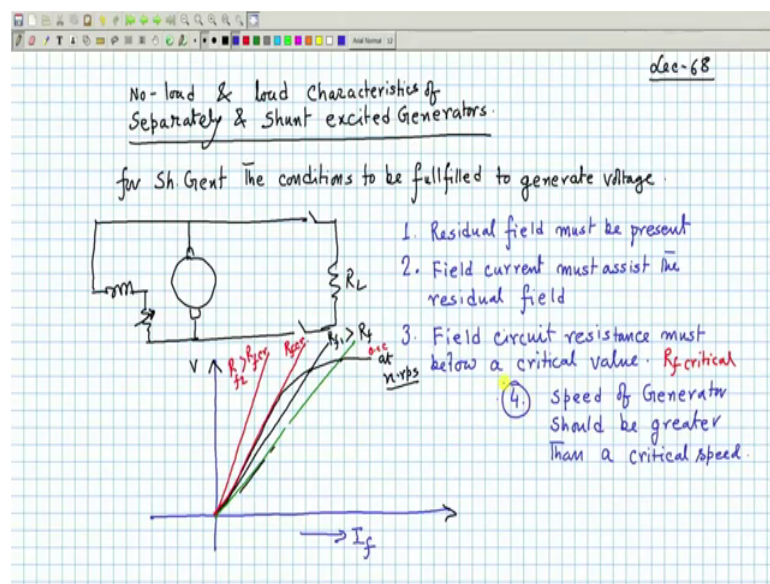 Arial Normal 12
Lec-68
No-load & load characteristics of
Separately & Shunt excited Generators.
for Sh. Gent The conditions to be fullfilled to generate voltage.
1. Residual field must be present
2. Field current must assist The
residual field
3. Field circuit resistance must
below a critical value. Rf critical
4. Speed of Generator
should be greater
Than a critical speed.
RL
V
Rf2 > Rfcr
Rfcr
Rf1 > Rf
o.c.c
at
n.rps
If